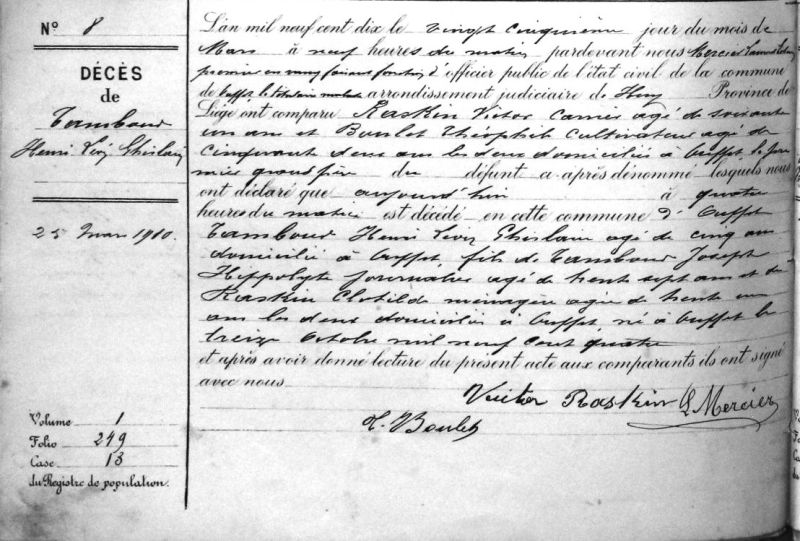 N° 8
DÉCÈS
de
Tambour
Henri Léon Ghislain
25 Mars 1910.
Volume 1
Folio 249
Case 13
du Registre de population.
L'An mil neuf cent dix le vingt cinquième jour du mois de
Mars à neuf heures du matin pardevant nous Mercier
faisant fonction d'officier public de l'état civil de la commune
de Ouffet, le titulaire malade arrondissement judiciaire de Huy Province de
Liège ont comparu Raskin Victor Carrier agé de soixante
un ans et Boulet Théophile Cultivateur agé de
cinquante deux ans les deux domiciliés à Ouffet, le pre
mier grand père du défunt ci-après dénommé lesquels nous
ont déclaré que aujourd'hui à quatre
heures du matin est décédé en cette commune d'Ouffet
Tambour Henri Léon Ghislain agé de cinq ans
domicilié à Ouffet, fils de Tambour Joseph
Hippolyte journalier agé de trente sept ans et de
Raskin Clotilde ménagère agée de trente un
ans les deux domiciliés à Ouffet, né à Ouffet le
treize Octobre mil neuf cent quatre
et après avoir donné lecture du présent acte aux comparants ils ont signé
avec nous
Victor Raskin L Mercier
T. Boulet